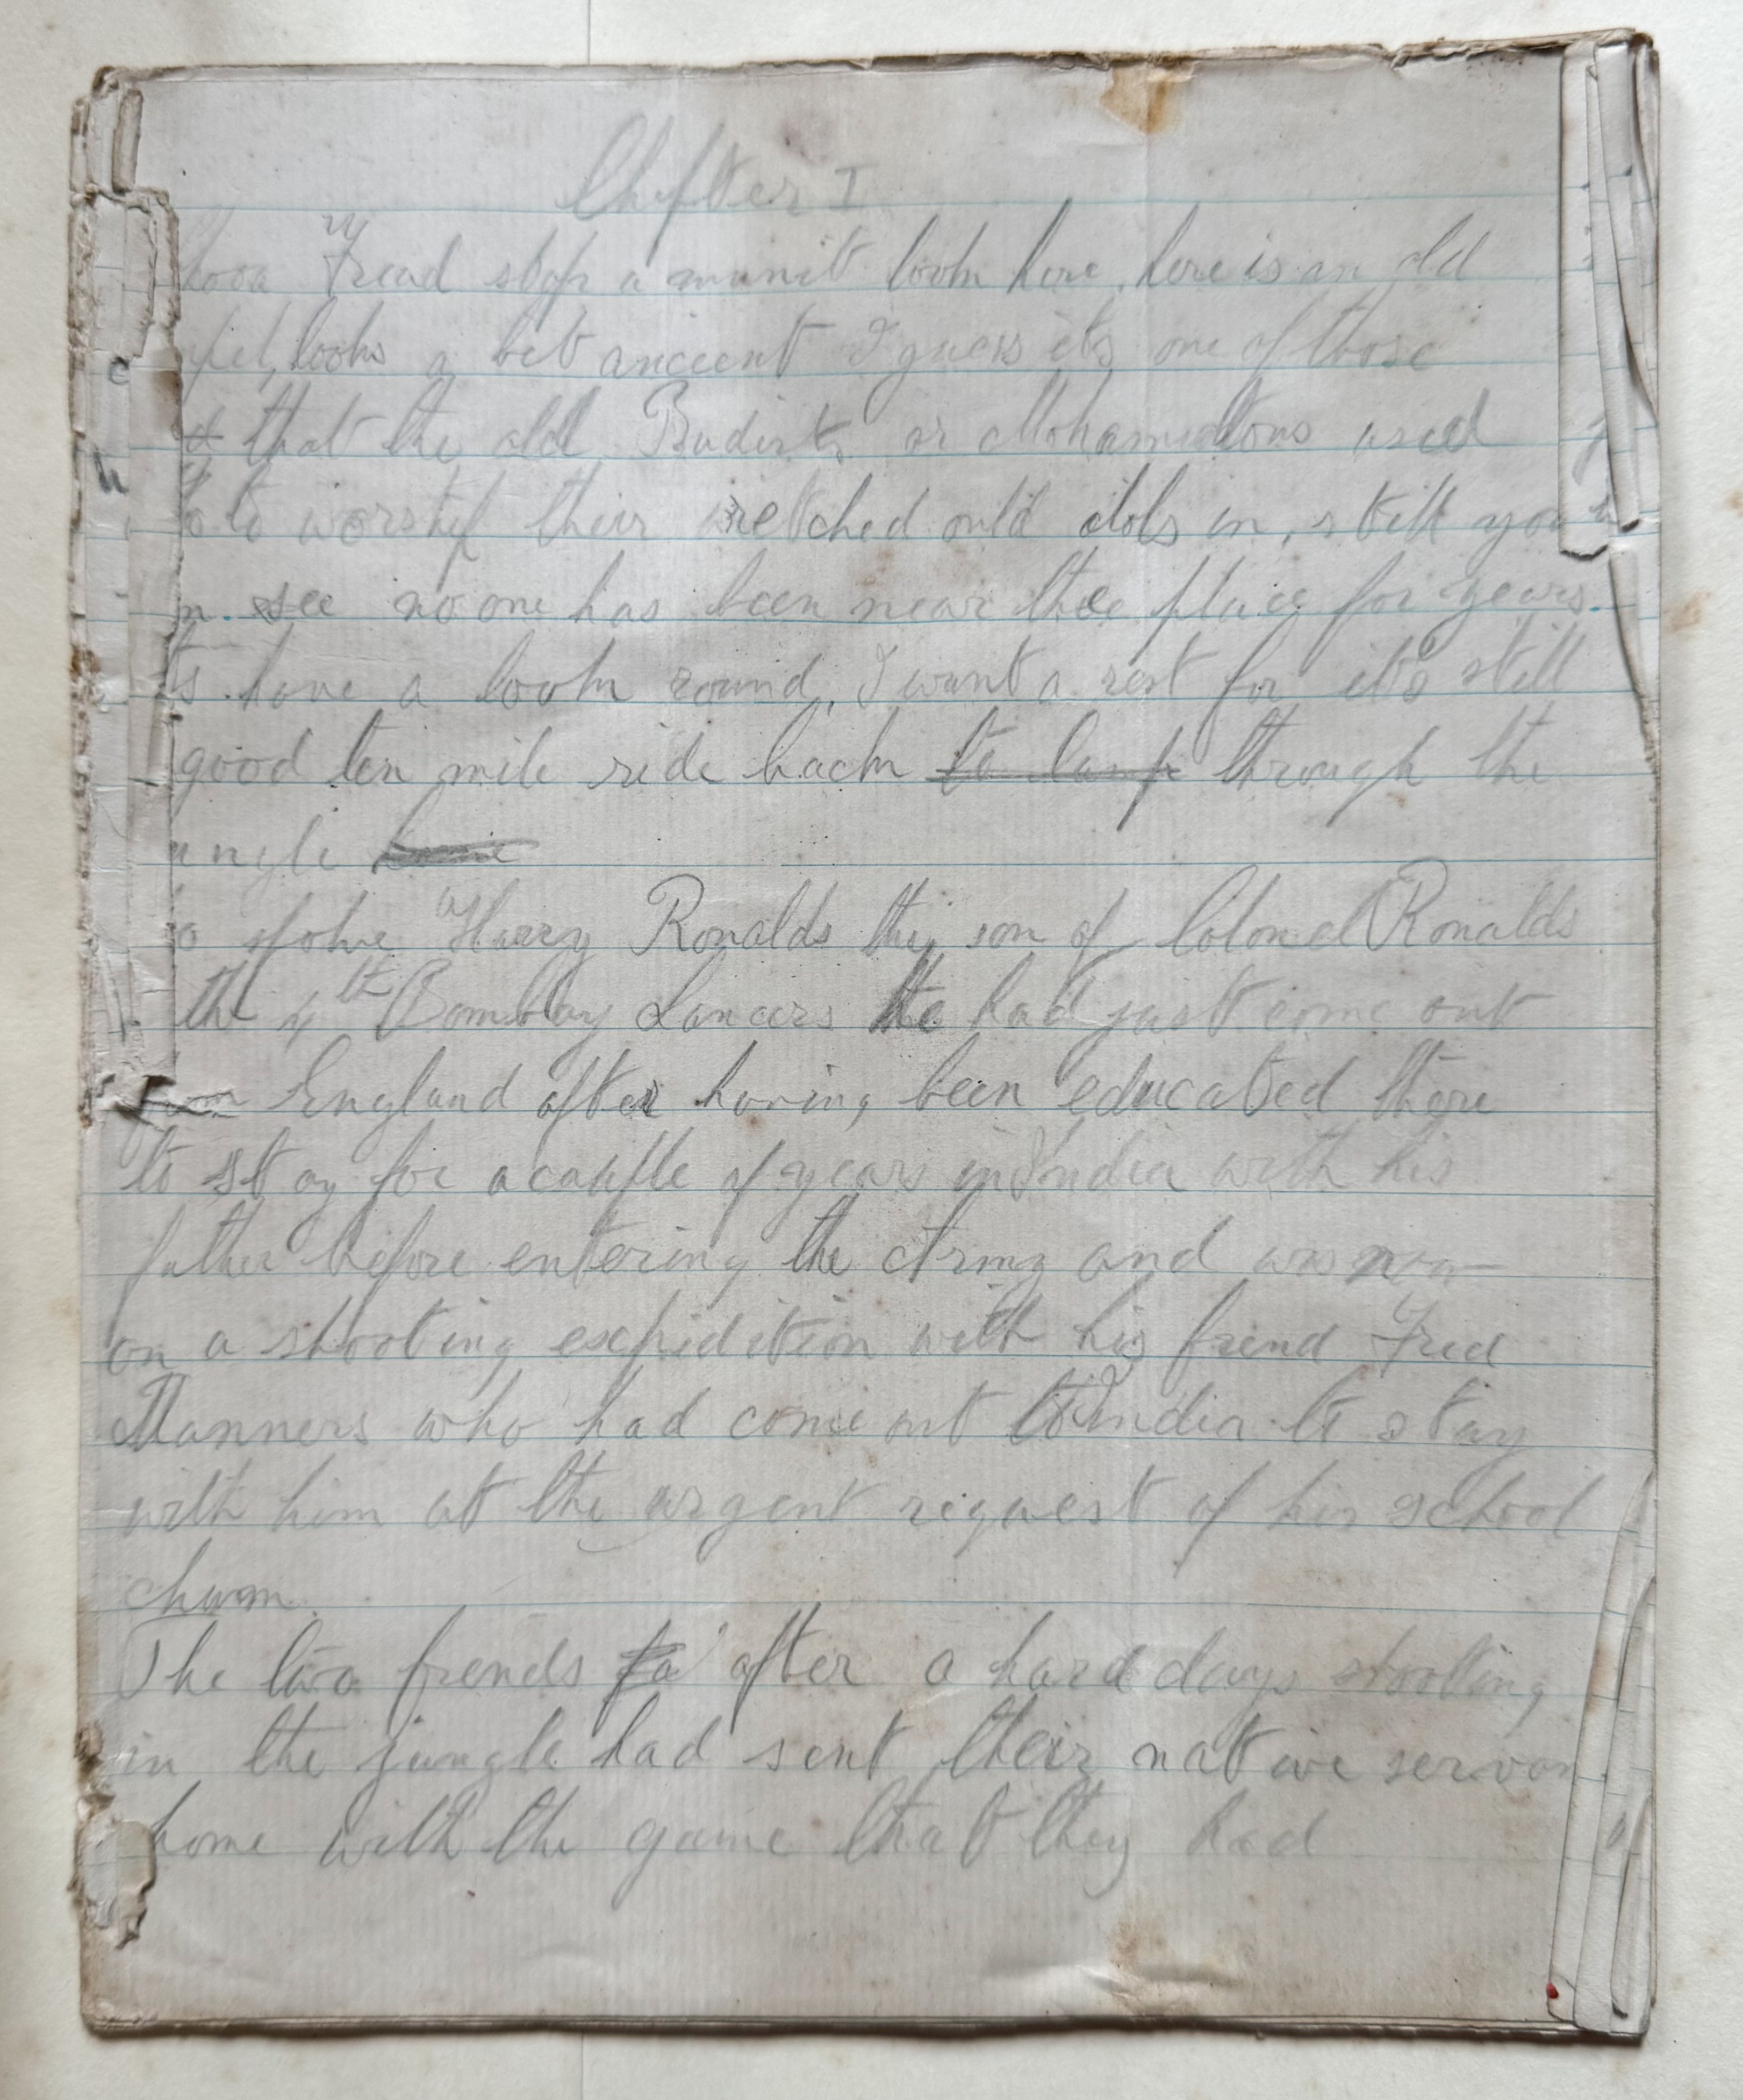 Chapter I
hooa Fread stop a munit look here, here is an old
pel, looks a bit anceent I guess its one of those
that the old Budists or Mohamedons used
to worship their wretched ould idols in, still you
n. see no one has been near thee place for years.
ts have a look round, I want a rest for it's still
good ten mile ride back to camp through the
ungle home
o spoke Harry Ronalds the son of Colonel Ronalds
the 4th Bombay Lancers He had just come out
from England after having been educated there
to stay for a couple of years in India with his
father before entering the Army and was now
on a shooting expidition with his friend Fred
Manners who had come out to India to stay
with him at the urgent request of his school
chum.
The two frends to after a hard days shooting
in the jungle had sent their native servan
home with the game that they had